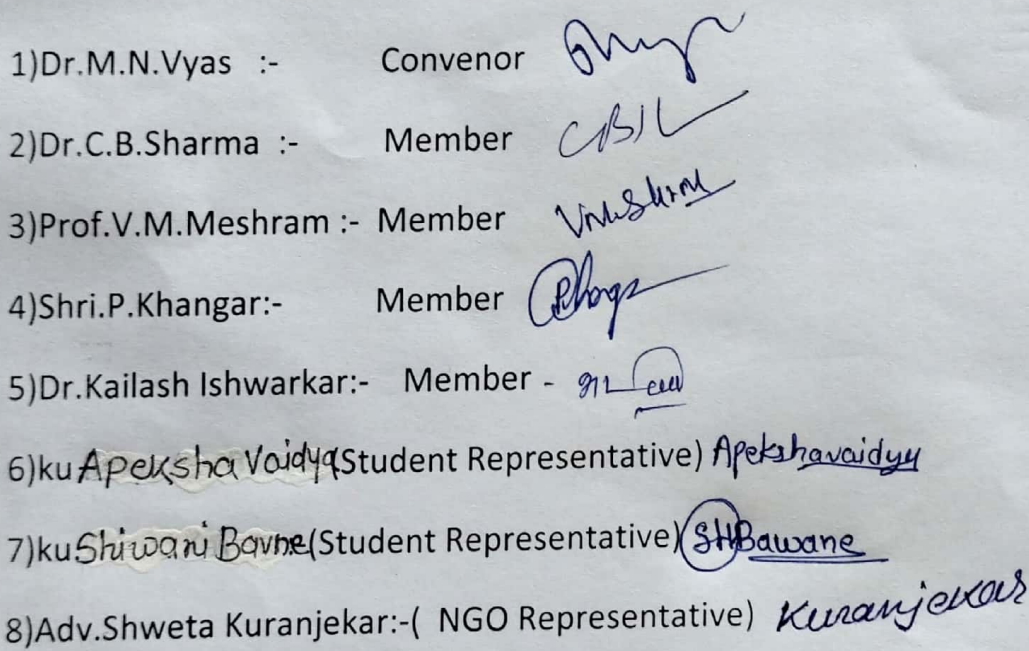 1)Dr.M.N.Vyas :- Convenor
2)Dr.C.B.Sharma :- Member
3)Prof.V.M.Meshram :- Member
4)Shri.P.Khangar:- Member
5)Dr.Kailash Ishwarkar:- Member -
6)ku Apeksha Vaidya(Student Representative) Apekshavaidya
7)ku Shiwani Bavne(Student Representative) SHBawane
8)Adv.Shweta Kuranjekar:-( NGO Representative) Kuranjekar